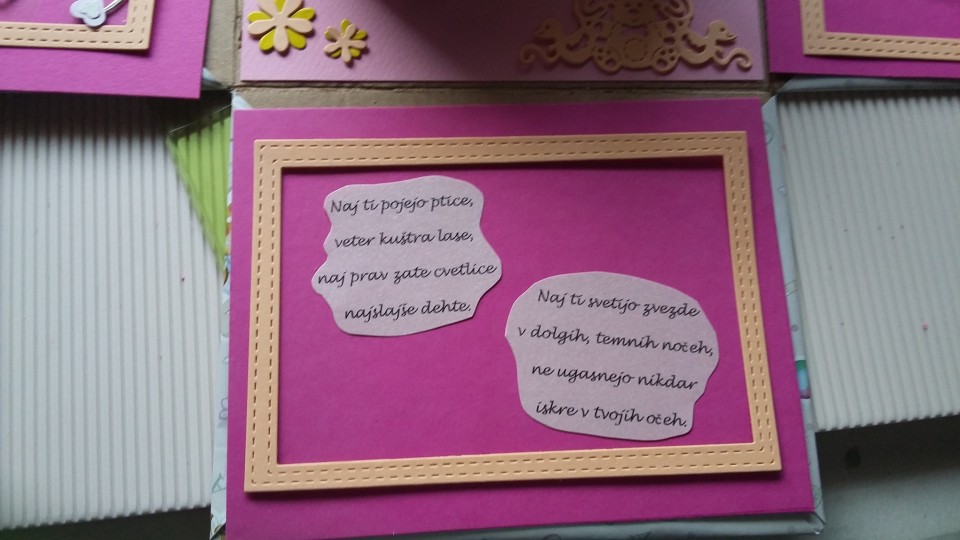 Naj ti pojejo ptice,
veter kuštra lase,
naj prav zate cvetlice
najslajše dehte.
Naj ti svetijo zvezde
v dolgih, temnih nočeh,
ne ugasnejo nikdar
iskre v tvojih očeh.